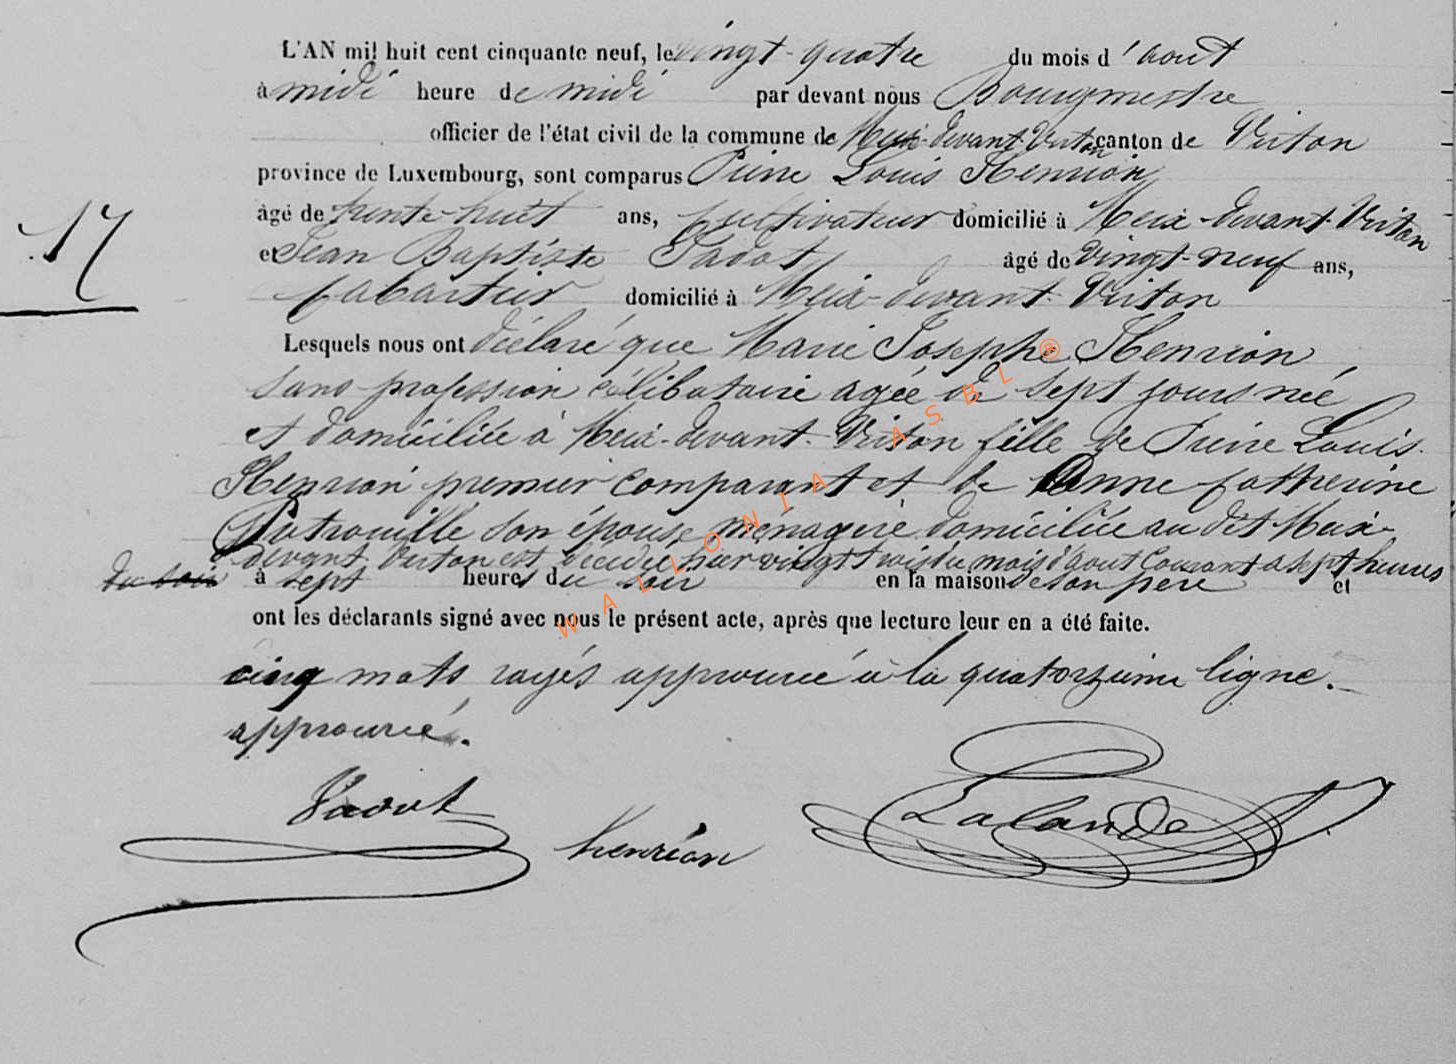 L'AN mil huit cent cinquante neuf, le vingt-quatre du mois d'Aout
à midi heure de midi par devant nous Bourgmestre
officier de l'état civil de la commune de Meix-devant-Virton canton de Virton
province de Luxembourg, sont comparus Pierre Louis Henrion
17
âgé de trente-huit ans, Cultivateur domicilié à Meix-devant-Virton
et Jean Baptiste Sadot âgé de vingt-neuf ans,
Cabartier domicilié à Meix-devant-Virton
Lesquels nous ont déclaré que Marie Josephe Henrion
sans profession célibataire agée de sept jours née
et domiciliée à Meix-devant-Virton fille de Pierre Louis
Henrion premier Comparant et de Anne Catherine
Patrouille son épouse, menagère domiciliée au dit Meix-
devant Virton est décédée hier vingt trois du mois d'aout Courant a sept heures
du soir à sept heures du soir en la maison de son pere et
ont les déclarants signé avec nous le présent acte, après que lecture leur en a été faite.
cinq mots rayés approuvé à la quatorzieme ligne.
approuvé.
Sadot
henrion
Lalande
WALLONIA ASBL ®